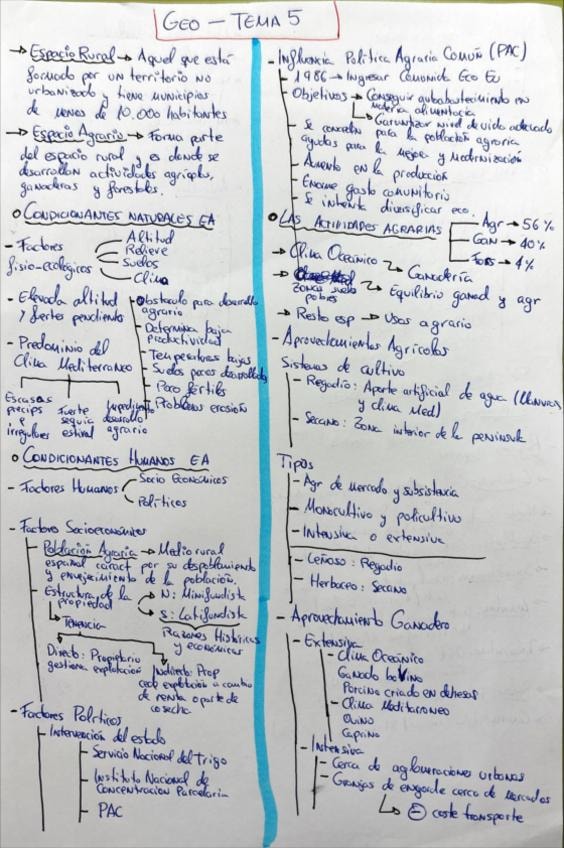 GEO - TEMA 5
→ Espacio Rural → Aquel que está
formado por un territorio no
urbanizado y tiene municipios
de menos de 10.000 habitantes
→ Espacio Agrario → Forma parte
del espacio rural y es donde se
desarrollan actividades agrícolas,
ganaderas y forestales.
o CONDICIONANTES NATURALES EA
- Factores
fisio-ecológicos
Altitud
Relieve
Suelos
Clima
- Elevada altitud
y fuertes pendientes
Obstáculo para desarrollo
agrario
- Determina baja
productividad
- Temperaturas bajas
- Suelos pocos desarrollados
- Poco fértiles
- Problemas erosión
- Predominio del
Clima Mediterraneo
Escasas
precips
e
irregulares
fuerte
sequia
estival
Impedimento
desarrollo
agrario
o CONDICIONANTES HUMANOS EA
- Factores Humanos
Socio Económicos
Políticos
- Factores Socioeconómicos
- Población Agraria → Medio rural
español caract por su despoblamiento
y envejecimiento de la población.
- Estructura de la
propiedad
→ N: Minifundista
→ S: Latifundista
Razones Históricas
y económicas
↳ Tenencia
Directo: Propietario
gestiona explotación
Indirecto: Prop
cede explotación a cambio
de renta o parte de
cosecha
- Factores Políticos
- Intervención del estado
- Servicio Nacional del Trigo
- Instituto Nacional de
Concentración Parcelaria
- PAC
- Influencia Política Agraria Común (PAC)
- 1986 → Ingresar Comunida Eco Eu
- Objetivos → Conseguir autoabastecimiento en
materia alimentacia
↳ Garantizar nivel de vida adecuado
para la población agraria
- Se conceden
ayudas para la mejora y modernización
- Aumento en la
producción
- Enorme gasto comunitario
- Se intenta diversificar eco.
o LAS ACTIVIDADES AGRARIAS
Agr → 56%
Gan → 40%
Fors → 4%
→ Clima Oceánico → Ganadería
→ zonas suelo
pobres → Equilibrio ganad y agr
→ Resto esp → Usos agrario
- Aprovechamientos Agrícolas
Sistemas de cultivo
- Regadío: Aporte artificial de agua (llanuras
y clima Med)
- Secano: Zona interior de la peninsula
Tipos
- Agr de mercado y subsistencia
- Monocultivo y policultivo
- Intensiva o extensiva
- Leñoso: Regadio
- Herbaceo: Secano
- Aprovechamiento Ganadero
- Extensiva
- Clima Oceánico
Ganado bovino
Porcino criado en dehesas
- Clima Meditarraneo
Ovino
Caprino
- Intensiva
- Cerca de aglomeraciones urbanas
- Granjas de engorde cerca de Mercados
↳ ⊖ coste transporte